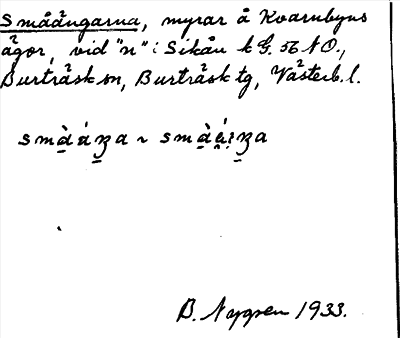 Småängarna, myrar å Kvarnbyns
ägor, vid "n" i Sikån k G. 56 NO.,
Burträsk sn, Burträsk tg, Västerb. l.
B. Nygren 1933.